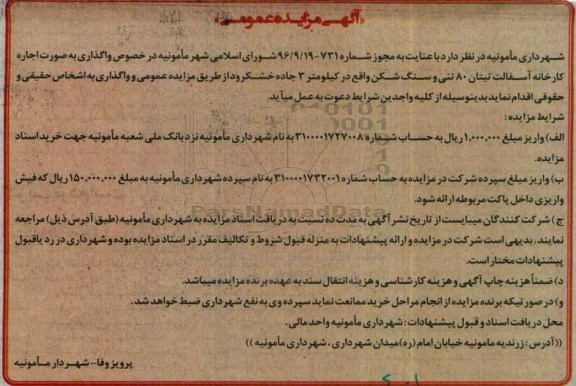 «آگهی مزایده عمومی»
شهرداری مأمونیه در نظر دارد با عنایت به مجوز شماره ۷۳۱-۹۶/۹/۱۹ شورای اسلامی شهر مأمونیه در خصوص واگذاری به صورت اجاره
کارخانه آسفالت تیتان ۸۰ تنی و سنگ شکن واقع در کیلومتر ۳ جاده خشکرود از طریق مزایده عمومی و واگذاری به اشخاص حقیقی و
حقوقی اقدام نماید بدینوسیله از کلیه واجدین شرایط دعوت به عمل میآید.
شرایط مزایده:
الف) واریز مبلغ ۱,۰۰۰,۰۰۰ ریال به حساب شماره ۳۱۰۰۰۰۱۷۲۷۰۰۸ به نام شهرداری مأمونیه نزد بانک ملی شعبه مأمونیه جهت خرید اسناد
مزایده.
ب) واریز مبلغ سپرده شرکت در مزایده به حساب شماره ۳۱۰۰۰۰۱۷۳۲۰۰۱ به نام سپرده شهرداری مأمونیه به مبلغ ۱۵۰,۰۰۰,۰۰۰ ریال که فیش
واریزی داخل پاکت مربوطه ارائه شود.
ج) شرکت کنندگان میبایست از تاریخ نشر آگهی به مدت ده نسبت به دریافت اسناد مزایده به شهرداری مأمونیه (طبق آدرس ذیل) مراجعه
نمایند. بدیهی است شرکت در مزایده و ارائه پیشنهادات به منزله قبول شروط و تکالیف مقرر در اسناد مزایده بوده و شهرداری در رد یا قبول
پیشنهادات مختار است.
د) ضمناً هزینه چاپ آگهی و هزینه کارشناسی و هزینه انتقال سند به عهده برنده مزایده میباشد.
و) در صورتیکه برنده مزایده از انجام مراحل خرید ممانعت نماید سپرده وی به نفع شهرداری ضبط خواهد شد.
محل دریافت اسناد و قبول پیشنهادات: شهرداری مأمونیه واحد مالی.
((آدرس: زرندیه مامونیه خیابان امام (ره) میدان شهرداری، شهرداری مأمونیه))
پرویز وفا- شهردار مأمونیه